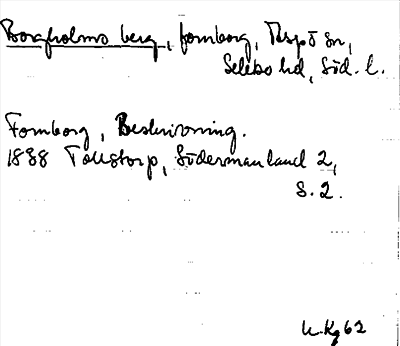 Borgholms berg, fornborg, Aspö sn,
Selebo hd, Söd. l.
Fornborg, Beskrivning.
1888 Tollstorp, Södermanland 2,
S. 2.
62